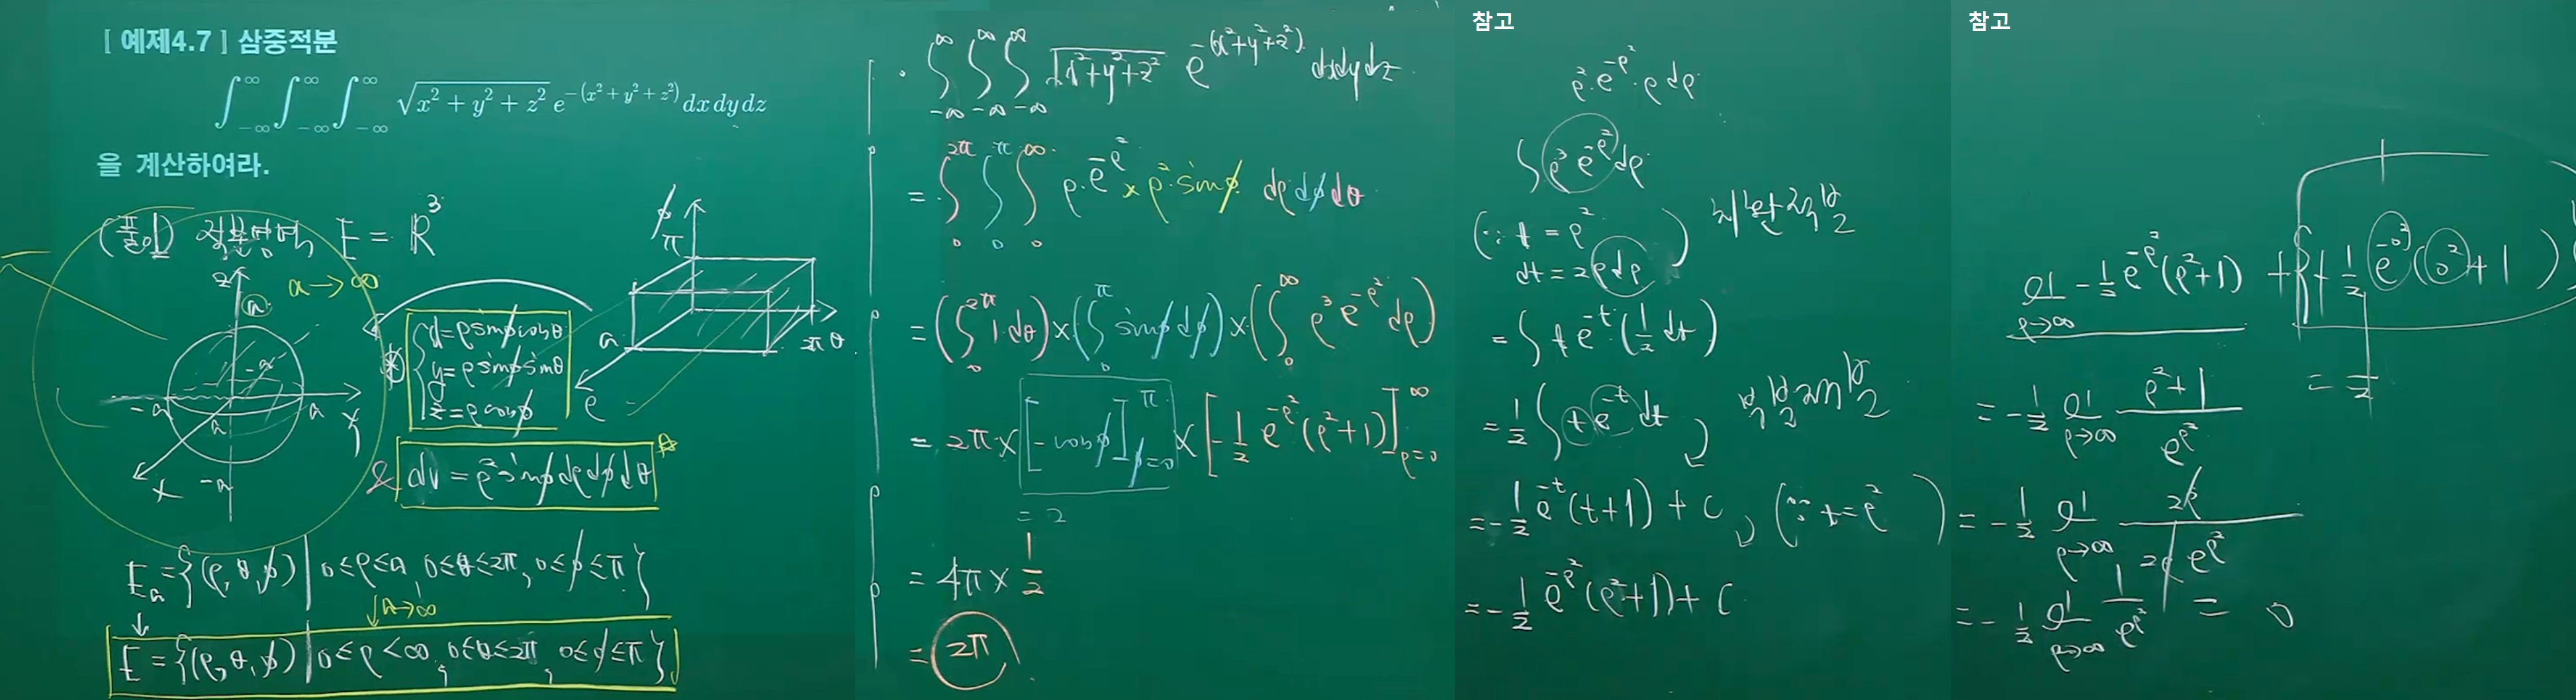 [ 예제4.7 ] 삼중적분
∫_{-∞}^{∞} ∫_{-∞}^{∞} ∫_{-∞}^{∞} √(x² + y² + z²) e^{-(x² + y² + z²)} dx dy dz
을 계산하여라.
(풀이) 적분영역 E = ℝ³
z
a
a → ∞
-a
-a
a
y
a
x
-a
x = ρ sinφ cosθ
y = ρ sinφ sinθ
z = ρ cosφ
& dV = ρ² sinφ dρ dφ dθ
φ
π
a
2π θ
ρ
E_a = {(ρ, θ, φ) | 0 ≤ ρ ≤ a, 0 ≤ θ ≤ 2π, 0 ≤ φ ≤ π}
↓ ↓ a → ∞
E = {(ρ, θ, φ) | 0 ≤ ρ < ∞, 0 ≤ θ ≤ 2π, 0 ≤ φ ≤ π}
∫_{-∞}^{∞} ∫_{-∞}^{∞} ∫_{-∞}^{∞} √(x²+y²+z²) e^{-(x²+y²+z²)} dx dy dz
= ∫_0^{2π} ∫_0^{π} ∫_0^{∞} ρ · e^{-ρ²} × ρ² · sinφ dρ dφ dθ
= (∫_0^{2π} 1 dθ) × (∫_0^{π} sinφ dφ) × (∫_0^{∞} ρ³ e^{-ρ²} dρ)
= 2π × [-cosφ]_{φ=0}^{π} × [-1/2 e^{-ρ²} (ρ²+1)]_{ρ=0}^{∞}
= 2
= 4π × 1/2
= 2π
참고
ρ² · e^{-ρ²} · ρ dρ
∫ ρ³ e^{-ρ²} dρ
(∵ t = ρ² 치환적분
dt = 2ρdρ)
= ∫ t e^{-t} (1/2 dt)
= 1/2 ∫ t e^{-t} dt 부분적분
= -1/2 e^{-t} (t+1) + C (∵ t = ρ²)
= -1/2 e^{-ρ²} (ρ²+1) + C
참고
lim_{ρ→∞} -1/2 e^{-ρ²} (ρ²+1) + {+ 1/2 e^{-0²} (0²+1)}
= 1/2
= -1/2 lim_{ρ→∞} (ρ²+1)/e^{ρ²}
= -1/2 lim_{ρ→∞} 2ρ/(2ρ e^{ρ²})
= -1/2 lim_{ρ→∞} 1/e^{ρ²} = 0